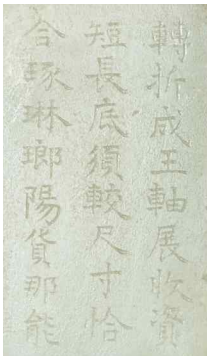 轉折成王軸展收資
短長底須較尺寸恰
合琢琳瑯陽貨那能